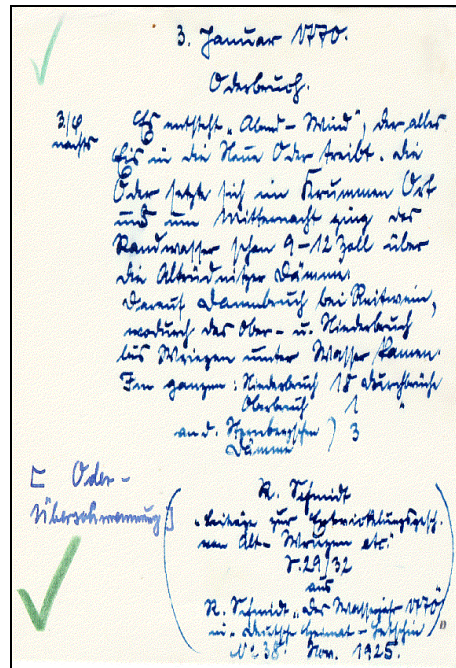 3. Januar 1770.
Oderbruch.
3./4.
nachts
Es entsteht „Abend-Wind", der alles
Eis in die Neue Oder treibt. Die
Oder setzte sich im Krummen Ort
und um Mitternacht ging das
Randwasser schon 9-12 Zoll über
die Altrüdnitzer Dämme.
Darauf Dammbruch bei Reitwein,
wodurch das Ober- u. Niederbruch
bis Wriezen unter Wasser kamen.
Im ganzen: Niederbruch 18 Durchbrüche
Oberbruch 1 "
an d. Sternbergschen ) 3
Dämme
[ Oder-
Überschwemmung ]
R. Schmidt
„Beiträge zur Entwicklungsgesch.
von Alt-Wriezen etc."
S. 29/32
aus
R. Schmidt „Das Wasserjahr 1770"
in Deutsche Heimat - Letschin
No 38. Nov. 1925.